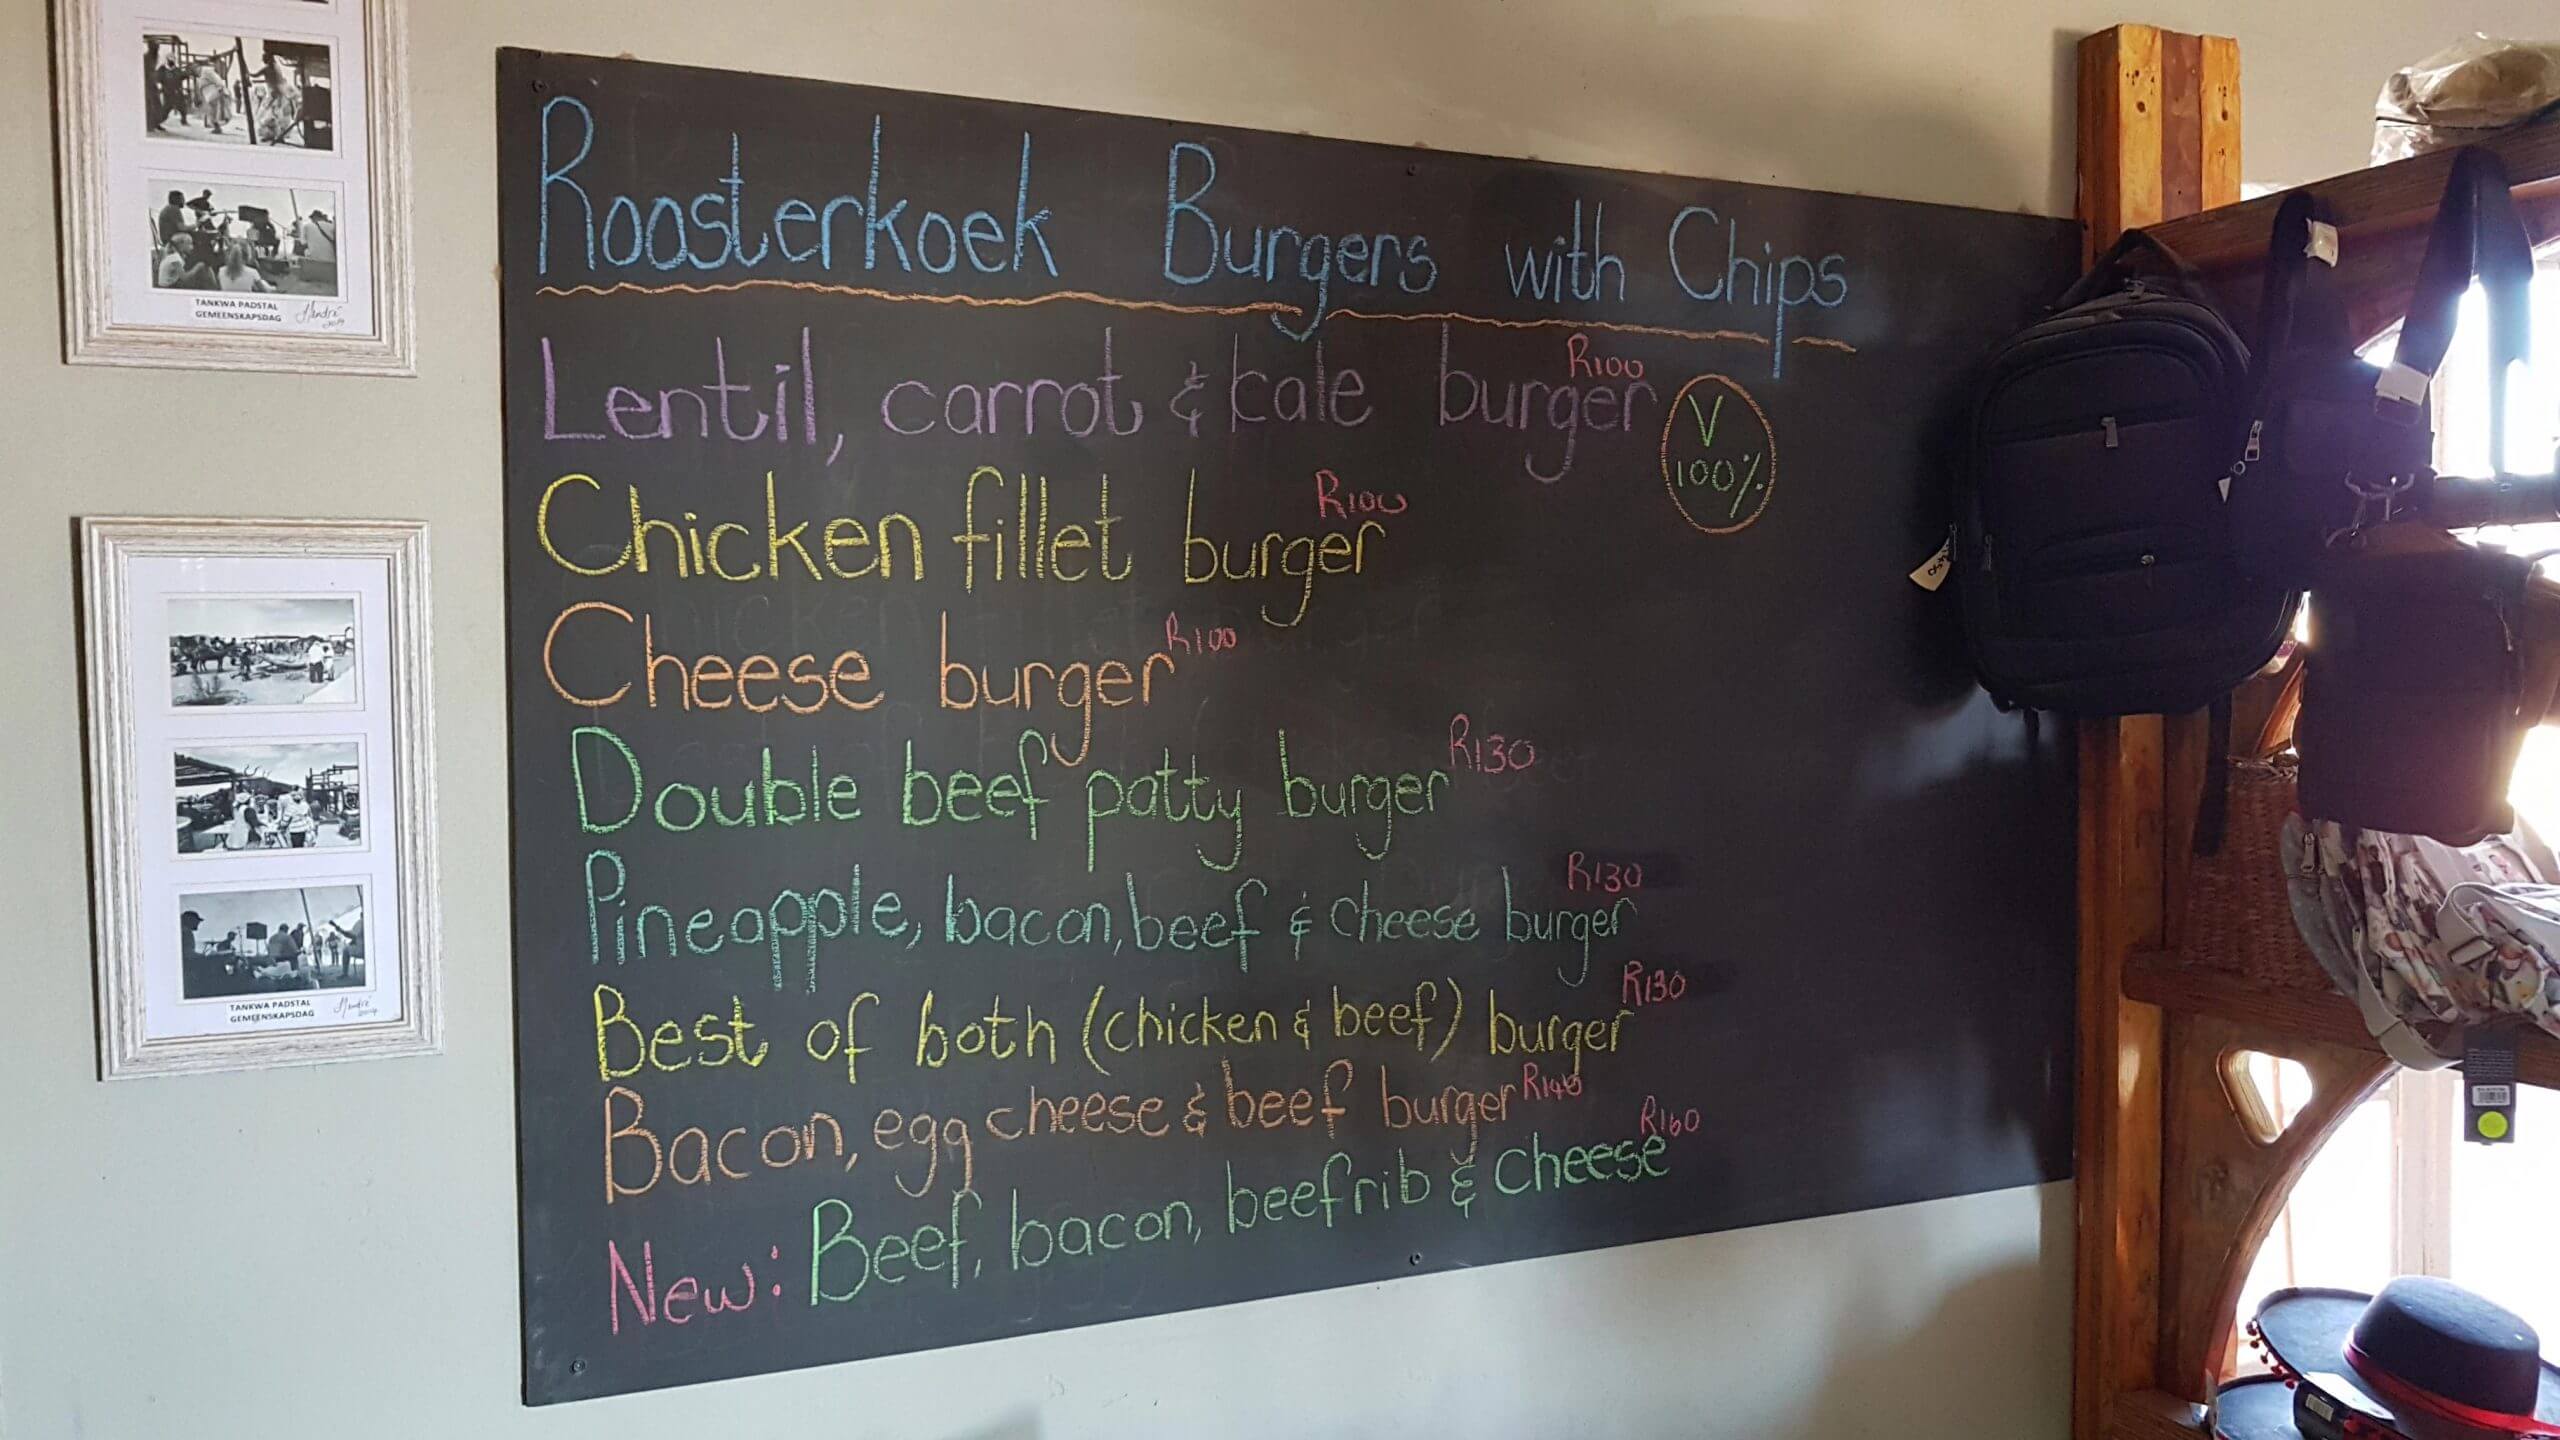 TANKWA PADSTAL
GEMEENSKAPSDAG
TANKWA PADSTAL
GEMEENSKAPSDAG
Roosterkoek Burgers with Chips
Lentil, carrot & kale burger R100
V
100%
Chicken fillet burger R100
Cheese burger R100
Double beef patty burger R130
Pineapple, bacon, beef & cheese burger R130
Best of both (chicken & beef) burger R130
Bacon, egg cheese & beef burger R140
New: Beef, bacon, beefrib & cheese R160